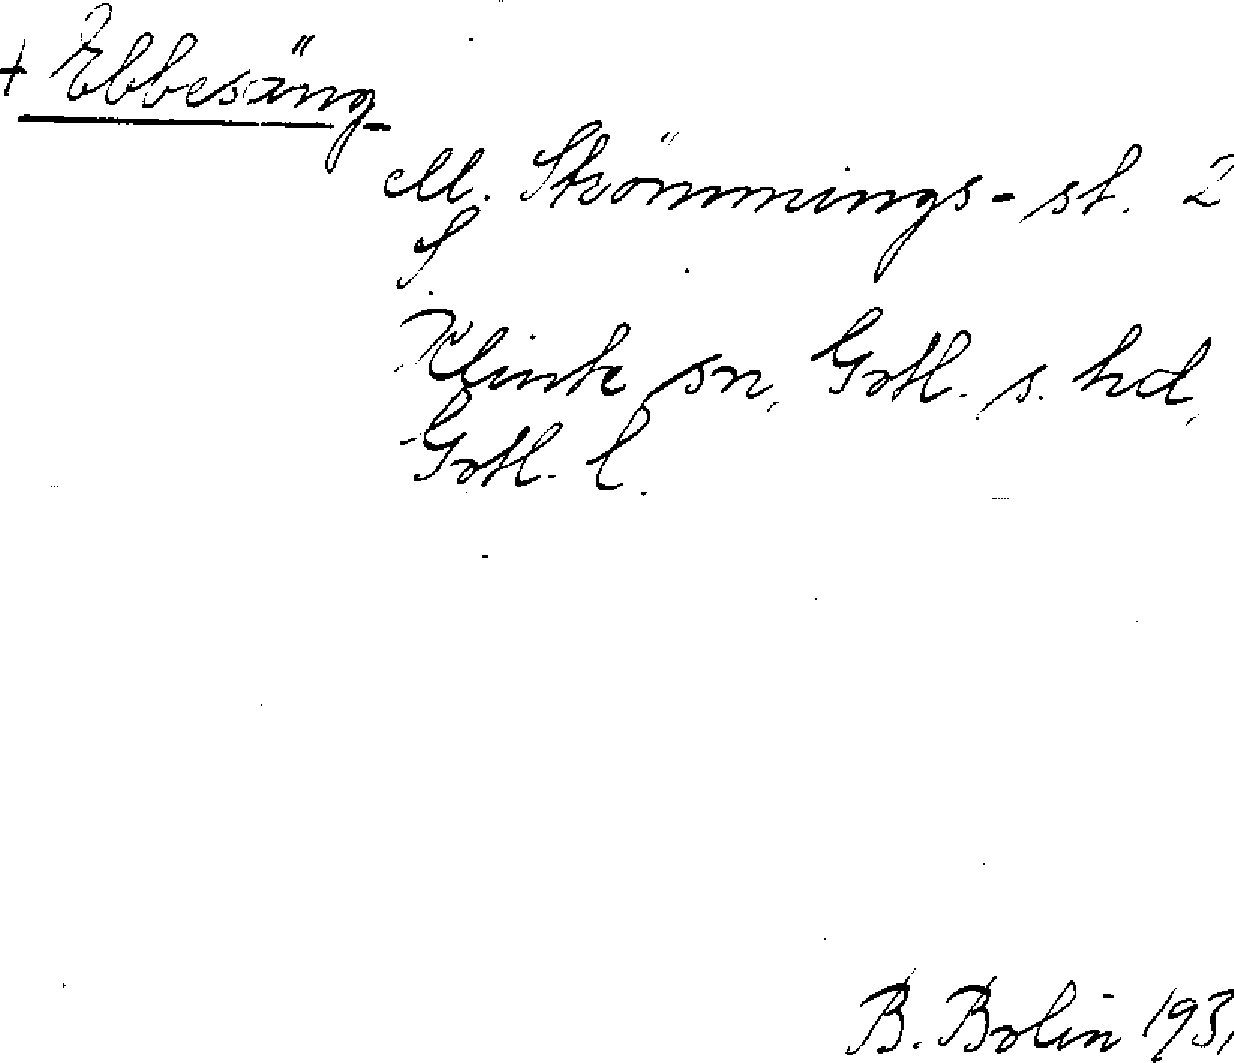 + Ebbesäng
M. Strömmings - st. 2
S.
Klinte sn, Gotl. s. hd,
Gotl. l.
B. Bolin 193